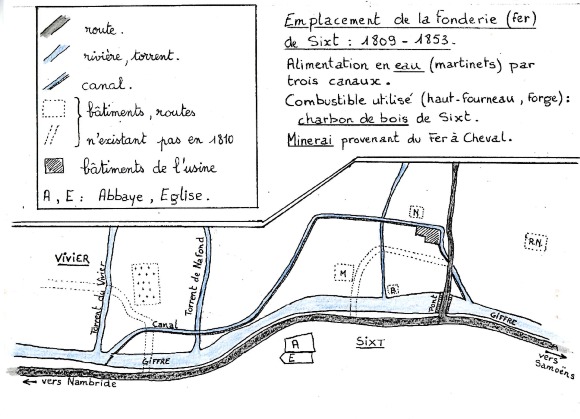 route.
rivière, torrent.
canal.
bâtiments, routes
n'existant pas en 1810
bâtiments de l'usine
A, E : Abbaye, Eglise.
Emplacement de la Fonderie (Fer)
de Sixt : 1809 - 1853.
Alimentation en eau (martinets) par
trois canaux.
Combustible utilisé (haut-fourneau, forge) :
charbon de bois de Sixt.
Minerai provenant du Fer à Cheval.
VIVIER
Torrent du Vivier
Torrent de Nafond
Canal
GIFFRE
← vers Nambride
A
E
SIXT
M
N.
B.
R.N.
Pont
GIFFRE
vers
Samoëns